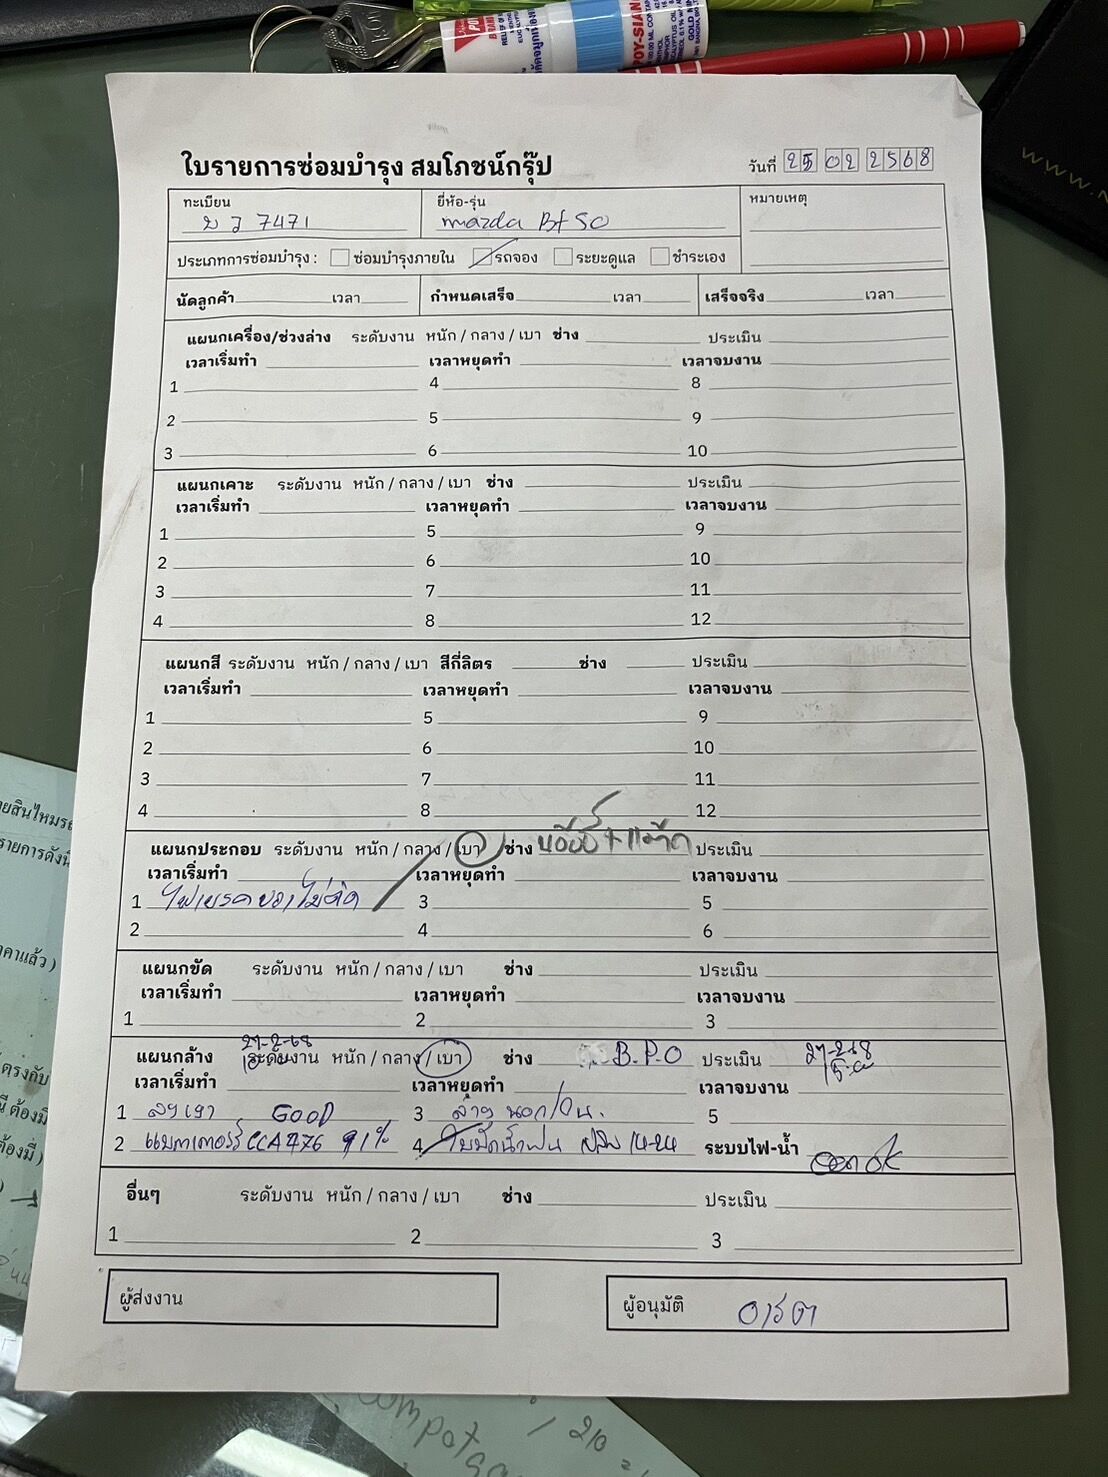 POY-SIAN
ใบรายการซ่อมบำรุง สมโภชน์กรุ๊ป
วันที่ 25 02 2568
ทะเบียน ยี่ห้อ-รุ่น หมายเหตุ
7471 mazda Bt 50
ประเภทการซ่อมบำรุง : ซ่อมบำรุงภายใน รถจอง ระยะดูแล ชำระเอง
นัดลูกค้า เวลา กำหนดเสร็จ เวลา เสร็จจริง เวลา
แผนกเครื่อง/ช่วงล่าง ระดับงาน หนัก / กลาง / เบา ช่าง ประเมิน
เวลาเริ่มทำ เวลาหยุดทำ เวลาจบงาน
1 4 8
2 5 9
3 6 10
แผนกเคาะ ระดับงาน หนัก / กลาง / เบา ช่าง ประเมิน
เวลาเริ่มทำ เวลาหยุดทำ เวลาจบงาน
1 5 9
2 6 10
3 7 11
4 8 12
แผนกสี ระดับงาน หนัก / กลาง / เบา สีกี่ลิตร ช่าง ประเมิน
เวลาเริ่มทำ เวลาหยุดทำ เวลาจบงาน
1 5 9
2 6 10
3 7 11
4 8 12
แผนกประกอบ ระดับงาน หนัก / กลาง / เบา ช่าง ประเมิน
เวลาเริ่มทำ เวลาหยุดทำ เวลาจบงาน
1 ไฟเบรคขวาไม่ติด 3 5
2 4 6
แผนกขัด ระดับงาน หนัก / กลาง / เบา ช่าง ประเมิน
เวลาเริ่มทำ เวลาหยุดทำ เวลาจบงาน
1 2 3
27-2-68
แผนกล้าง ระดับงาน หนัก / กลาง / เบา ช่าง B.P.O ประเมิน 27-2-68
เวลาเริ่มทำ เวลาหยุดทำ เวลาจบงาน
1 GOOD 3 ล้าง นอก/ใน. 5
2 แบตเตอร์รี่ CCA776 91% 4 ใบปัดน้ำฝน ระบบไฟ-น้ำ ok
อื่นๆ ระดับงาน หนัก / กลาง / เบา ช่าง ประเมิน
1 2 3
ผู้ส่งงาน ผู้อนุมัติ